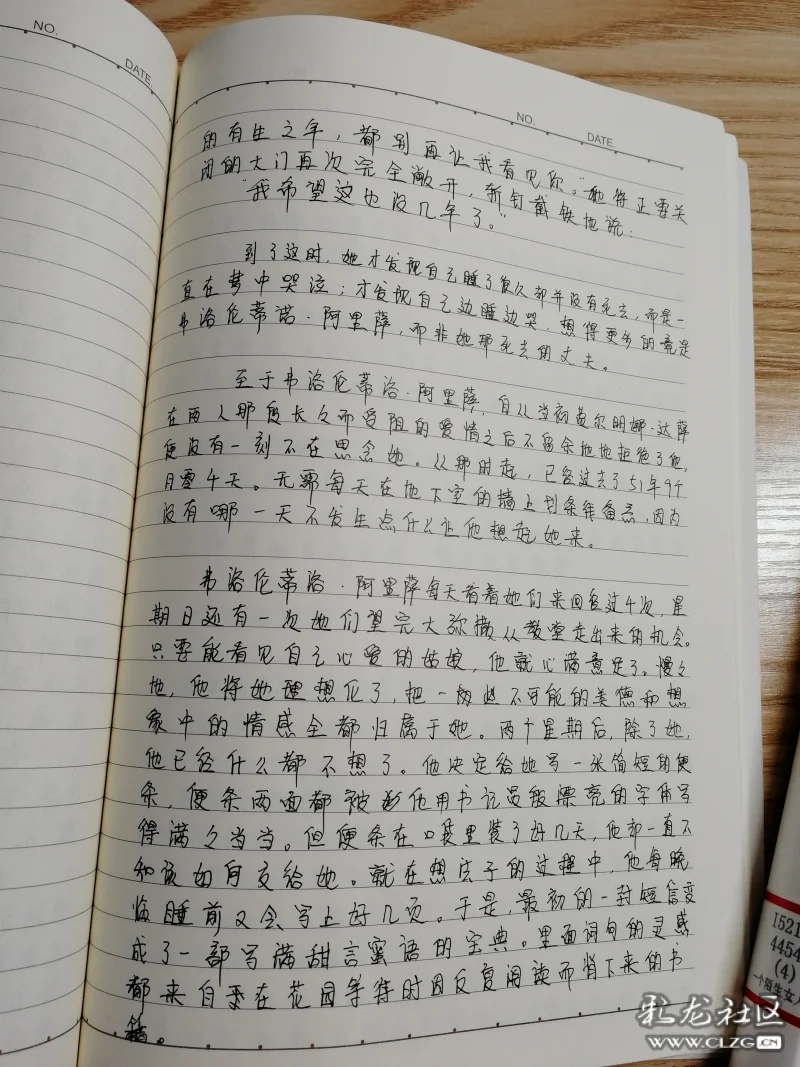 NO.
DATE
NO.
DATE
的有生之年，都别再让我看见你。”她将正要关
闭的大门再次完全敞开，斩钉截铁地说：
“我希望这也没几年了。”
到了这时，她才发现自己睡了很久却并没有死去，而是一
直在梦中哭泣；才发现自己边睡边哭，想得更多的竟是
弗洛伦蒂诺·阿里萨，而非她那死去的丈夫。
至于弗洛伦蒂洛·阿里萨，自从当初费尔明娜·达萨
在两人那段长久而受阻的爱情之后不留余地地拒绝了他，
便没有一刻不在思念她。从那时起，已经过去了51年9个
月零4天。无需每天在地下室的墙上划条准备忘，因为
没有哪一天不发生点什么让他想起她来。
弗洛伦蒂洛·阿里萨每天看着她们来回经过4次，星
期日还有一次她们望完大弥撒从教堂走出来的机会。
只要能看见自己心爱的姑娘，他就心满意足了。慢々
地，他将她理想化了，把一切些不可能的美德和想
象中的情感全都归属于她。两个星期后，除了她，
他已经什么都不想了。他决定给她写一张简短的便
条，便条两面都被他用书记员般漂亮的字体写
得满々当当。但便条在口袋里装了好几天，他却一直不
知该如何交给她。就在想法子的过程中，他每晚
临睡前又会写上好几页。于是，最初的一封短信变
成了一部写满甜言蜜语的宝典。里面词句的灵感
都来自在花园等待时因反复阅读而背下来的书
籍。
1521
4454
(4)
一个陌生女人
私龙社区
WWW.CLZG.CN